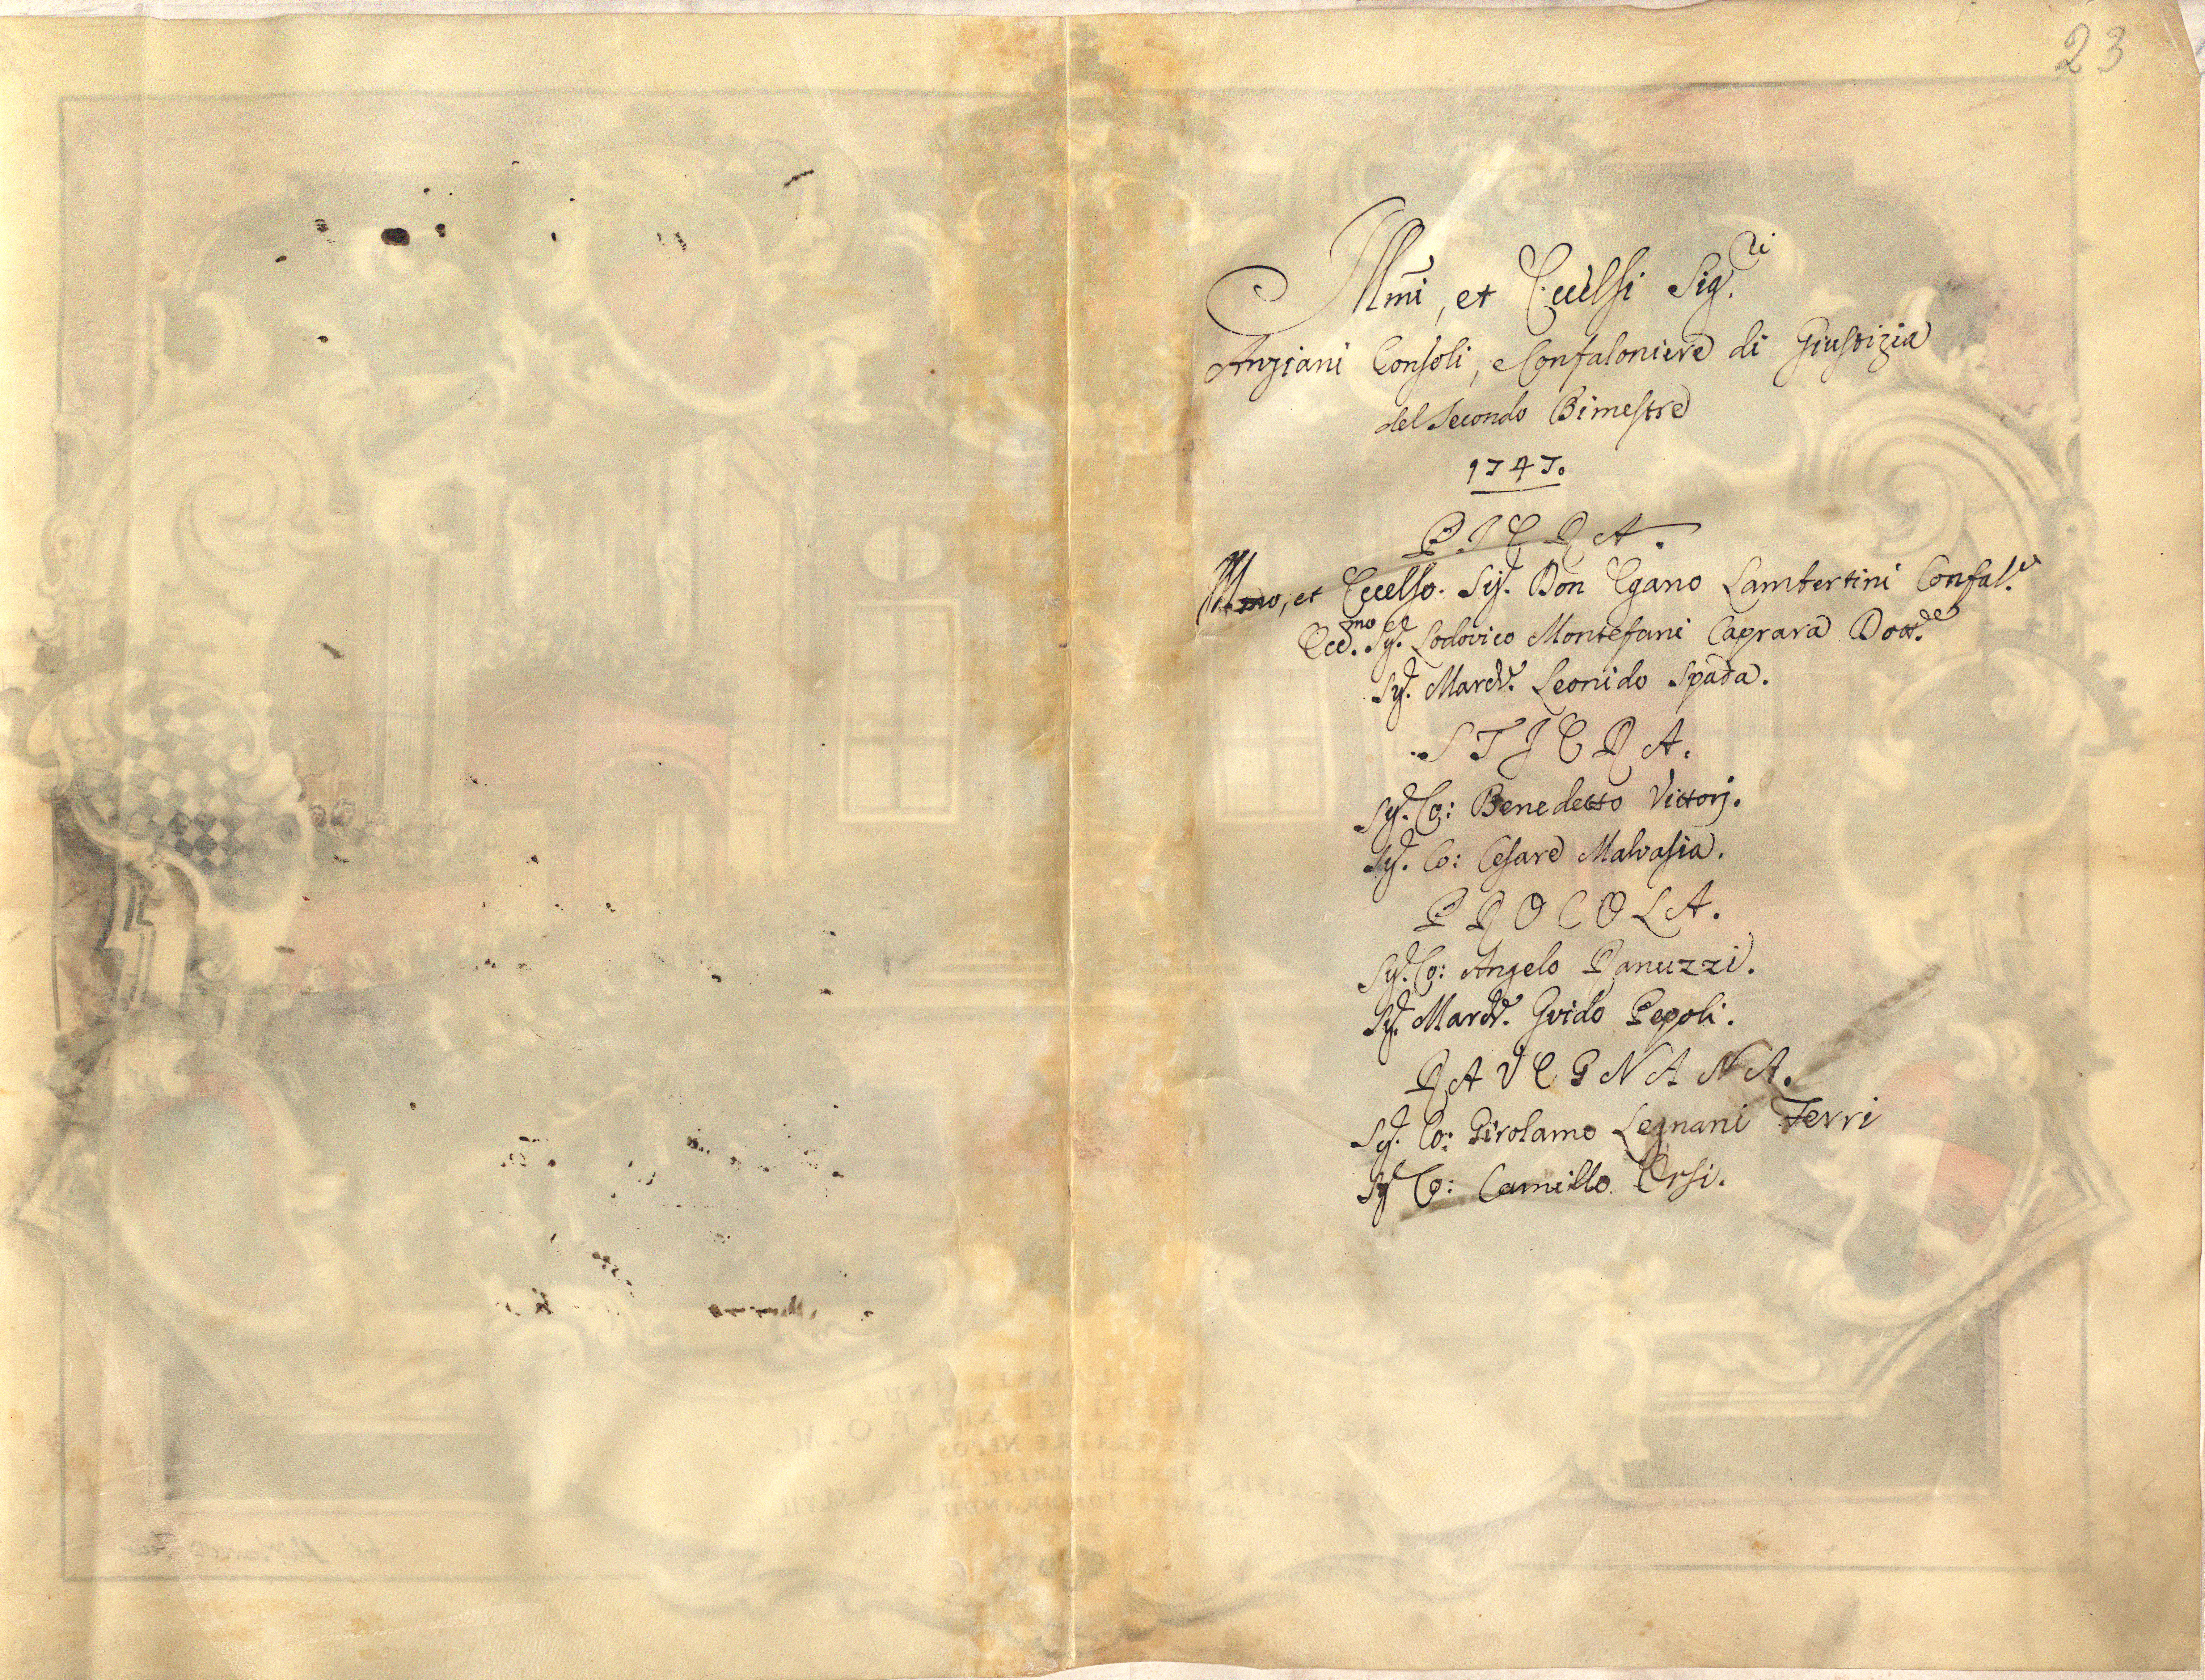 23
Illmi, et Eccelsi Sig.ri
Anziani Consoli, e Confaloniere di Giustizia
del Secondo Bimestre
1747.
PIERA.
Illmo, et Eccelso. Sig. Don Egano Lambertini Confal.e
Ecc.mo Sig. Lodovico Montefani Caprara Dott.e
Sig. March. Leonido Spada.
STIERA.
Sig. Co: Benedetto Vittorj.
Sig. Co: Cesare Malvasia.
PROCOLA.
Sig. Co: Angelo Ranuzzi.
Sig. March. Guido Pepoli.
RAVEGNANA.
Sig. Co: Girolamo Legnani Ferri
Sig Co: Camillo Orsi.